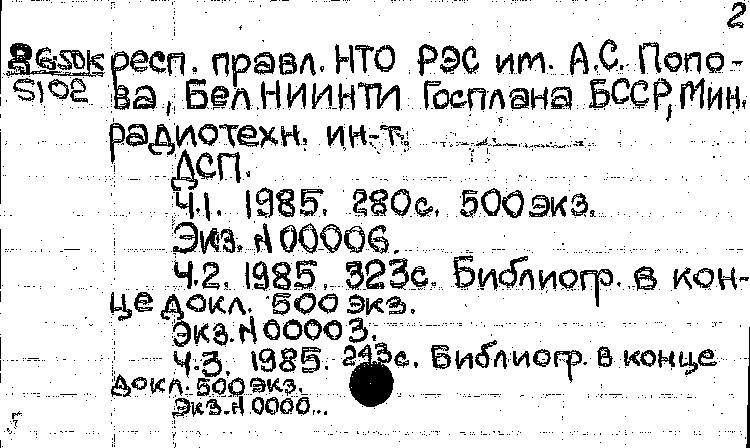 2
респ. правл. НТО РЭС им. А.С. Попо-
5102 ва, БелНИИНТИ Госплана БССР, Мин.
радиотехн. ин-т.
ДСП.
Ч.1. 1985. 280с. 500экз.
Экз. N 00006.
Ч.2. 1985. 323с. Библиогр. в кон-
це докл. 500 экз.
Экз. N 00003.
Ч.3. 1985. 243с. Библиогр. в конце
докл. 500 экз.
Экз. N 0000...